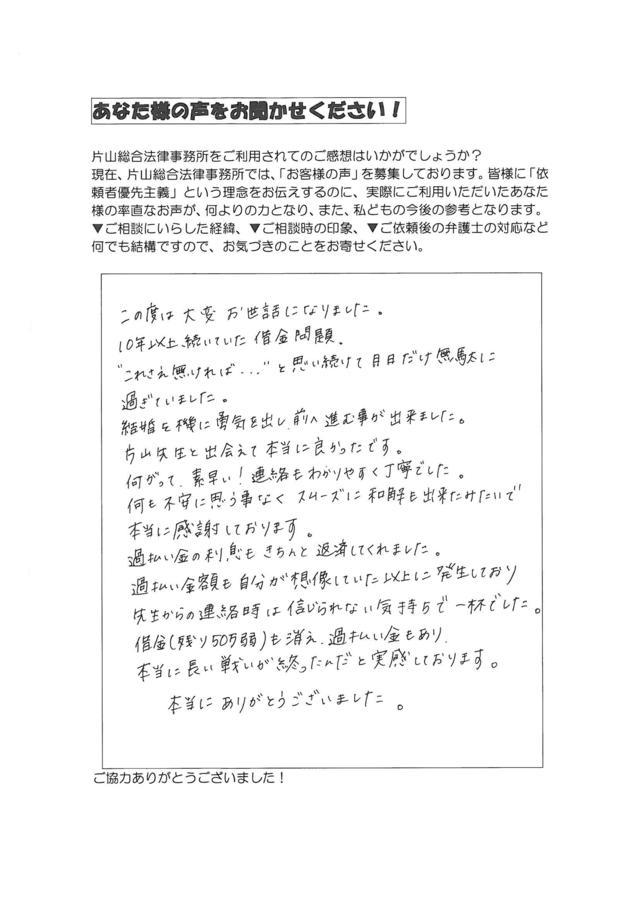 あなた様の声をお聞かせください!
片山総合法律事務所をご利用されてのご感想はいかがでしょうか?
現在、片山総合法律事務所では、「お客様の声」を募集しております。皆様に「依
頼者優先主義」という理念をお伝えするのに、実際にご利用いただいたあなた
様の率直なお声が、何よりの力となり、また、私どもの今後の参考となります。
▼ご相談にいらした経緯、▼ご相談時の印象、▼ご依頼後の弁護士の対応など
何でも結構ですので、お気づきのことをお寄せください。
この度は大変お世話になりました。
10年以上続いていた借金問題。
"これさえ無ければ..."と思い続けて月日だけ無駄に
過ぎていました。
結婚を機に勇気を出し、前へ進む事が出来ました。
片山先生と出会えて本当に良かったです。
何がって、素早い!連絡もわかりやすく丁寧でした。
何も不安に思う事なくスムーズに和解も出来たみたいで
本当に感謝しております。
過払い金の利息もきちんと返済してくれました。
過払い金額も自分が想像していた以上に発生しており
先生からの連絡時は信じられない気持ちで一杯でした。
借金(残り50万弱)も消え、過払い金もあり、
本当に長い戦いが終ったんだと実感しております。
本当にありがとうございました。
ご協力ありがとうございました!